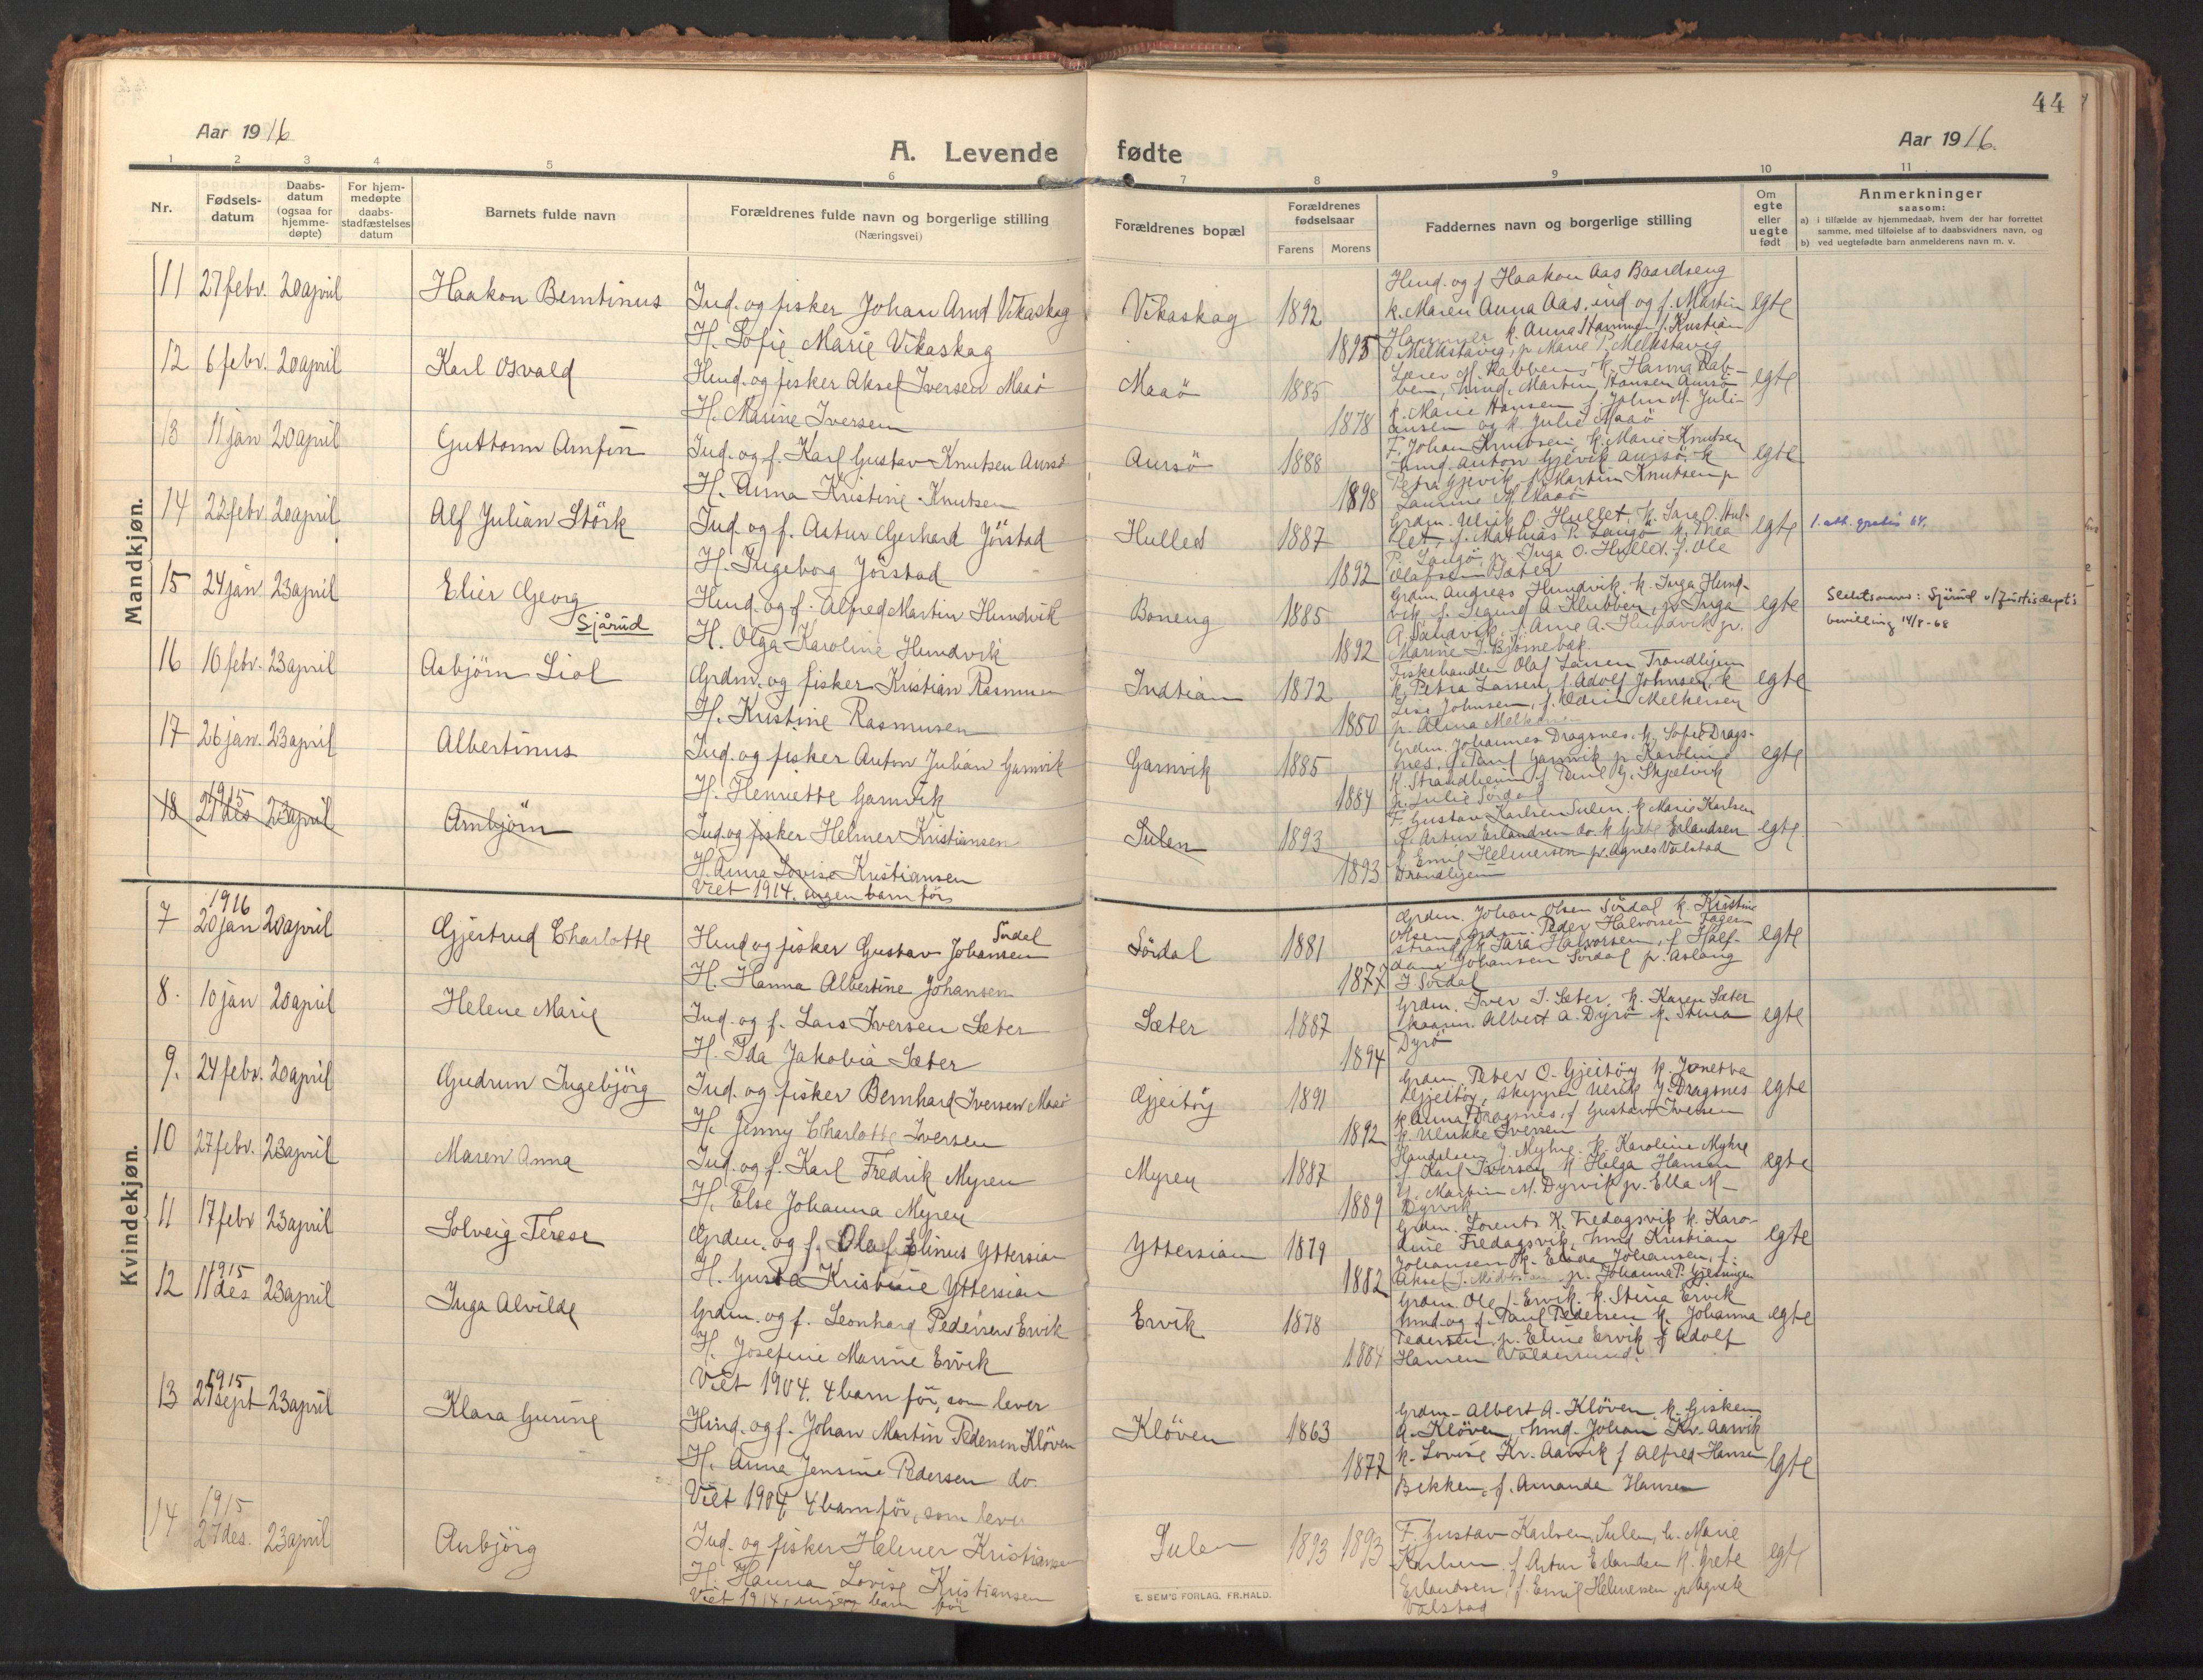 44
Aar 1916
Aar 1916.
A. Levende fødte
1 2 3 4 5 6 7 8 9 10 11
Nr.
Fødsels-
datum
Daabs-
datum
(ogsaa for
hjemme-
døpte)
For hjem-
medøpte
daabs-
stadfæstelses
datum
Barnets fulde navn
Forældrenes fulde navn og borgerlige stilling
(Næringsvei)
Forældrenes bopæl
Forældrenes
fødselsaar
Farens Morens
Faddernes navn og borgerlige stilling
Om
egte
eller
uegte
født
Anmerkninger
saasom:
a) i tilfælde av hjemmedaab, hvem der har forrettet
samme, med tilføielse af to daabsvidners navn, og
b) ved uegtefødte barn anmelderens navn m. v.
Mandkjøn.
11 27 febr. 20 april Haakon Berntinus Ind. og fisker Johan Arnt Vikaskag Vikaskag 1892 egte
H. Sofie Marie Vikaskag 1895
Hmd. og f Haakon Aas Baardseng
k. Maren Anna Aas, ind og f. Martin
Hammer k. Anna Hammer f. Kristian
O Melkstavig, p Marie P. Melkstavig
12 6 febr. 20 april Karl Osvald Hmd. og fisker Aksel Iversen Maaö Maaö 1885 egte
H. Marine Iversen 1878
Lærer M. Rabben, k. Hanna Rab-
ben, hmd. Martin Hansen Aursö
k. Marie Hansen f. John M. Juli-
ansen og p Julie Maaö
13 11 jan 20 april Guttorm Arnfin Ind. og f. Karl Gustav Knutsen Aursö Aursö 1888 egte
H. Anna Kristine Knutsen 1898
F. Johan Knutsen, k. Marie Knutsen
hmd. Anton Gjevik Aursö. k
Petra Gjevik f. Martin Knutsen p
Laurine M. Maaö
14 22 febr 20 april Alf Julian Störk Ind. og f. Artur Gerhard Jörstad Hulled 1887 egte 1. att. gratis 64.
H. Ingeborg Jörstad 1892
Grdm. Ulrik O. Hullet, k. Sara O. Hul-
let, f. Mathias P. Langö k. Thea
P. Langö, p. Inga O. Hullet. f. Ole
Olafsen Sæter
15 24 jan 23 april Elier Georg Hmd. og f. Alfred Martin Hundvik Boneng 1885 egte
Sjårud
H. Olga Karoline Hundvik 1892
Grdm Andreas Hundvik. k. Inga Hund-
vik, f. Sigurd A Klubben, p. Inga
A. Sandvik. f. Arne A. Hundvik p.
Marine J. Bjørnebak
Slektsnavn: Sjårud v/Justisdept's
bevilling 14/8-68
16 10 febr. 23 april Asbjörn Liol Grdm. og fisker Kristian Rasmusen Indtian 1872 egte
H. Kristine Rasmusen 1880
Fiskehandler Olaf Larsen Trondhjem
k. Petra Larsen, f. Adolf Johnsen, k
Lise Johnsen, f. Odin Melkersen
p. Alma
17 26 jan. 23 april Albertinus Ind. og fisker Anton Julian Garnvik Garnvik 1885 egte
H. Henriette Garnvik 1884
Grdm. Johannes Dragsnes, k. Sofie Drags-
nes, f. Paul Garnvik p Karoline
K. Strandheim f Paul G. Skjælvik
p. Julie Sördal
18 1915 27 des 23 april Arnbjörn Ind. og fisker Helmer Kristiansen Sulen 1893 egte.
H. Anna Lovise Kristiansen 1893
Viet 1914. ingen barn för
F. Gustav Karlsen Sulen. k Marie Karlsen
f. Artur Erlandsen do. k Grete Erlandsen
f. Emil Helmersen p. Agnes Valstad
Trondhjem
Kvindekjøn.
7 1916 20 jan 20 april Gjertrud Charlotte Hmd og fisker Gustav Johansen Sördal Sördal 1881 egte
H. Hanna Albertine Johansen 1877
Grdm. Johan Olsen Sördal k. Kristine
Olsen, grdm. Peder Halvorsen Fagen
strand, k Sara Halvorsen, f. Half-
dan Johansen Sördal p. Aslaug
J Sördal
8. 10 jan 20 april Helene Marie Ind. og f. Lars Iversen Sæter Sæter 1887 egte
H. Ida Jakobia Sæter 1894
Grdm. Iver J. Sæter, k. Karen Sæter
Albert A. Dyrö k. Stina
Dyrö
9. 24 febr. 20 april Gudrun Ingebjörg Ind. og fisker Bernhard Iversen Maaö Gjeitöy 1891 egte
H. Jenny Charlotte Iversen 1892
Grdm Peter O. Gjeitöy k. Jonetta
Gjeitöy, skipper Ulrik J. Dragsnes
k Anna Dragsnes, f Gustav Iversen
k. Ulrikke Iversen
10 27 febr. 23 april Maren Anna Ind. og f. Karl Fredrik Myren Myren 1887 egte
H. Else Johanna Myren 1889
Handelsm J. Myhre. k. Karoline Myhre
f Karl Iversen k Helga Hansen
U. Martin M. Dyrvik p. Ella M-
Dyrvik
11 17 febr 23 april Solveig Terese Grdm. og f. Olaf Elinus Yttersian Yttersian 1879 egte
H. Gusta Kristine Yttersian 1882
Grdm. Lorents K. Fredagsvik k. Karo-
line Fredagsvik, hmd Kristian
Johansen k. Elida Johansen, f.
Aksel J. p. Johanna P. Gjessingen
12 1915 11 des 23 april Inga Alvilde Grdm. og f. Leonhard Pedersen Ervik Ervik 1878 egte
H. Josefine Marine Ervik 1884
Viet 1904. 4 barn för, som lever
Grdm. Ole J. Ervik. k. Stina Ervik
hmd. og f. Paul Pedersen k. Johanna
Pedersen, p. Eline Ervik f Adolf
Hansen Valdersund.
13 1915 27 sept 23 april Klara Gurine Hmd. og f. Johan Martin Pedersen Klöven Klöven 1863 egte
H. Anna Jensine Pedersen do. 1877
Viet 1904 4 barn för, som lever
Grdm. Albert A. Klöven, k. Gisken
A. Klöven, hmd. Johan Kr. Aarvik
k. Lovise Kr. Aarvik f Alfred Hansen
Bekken, f. Amanda Hansen
14 1915 27 des. 23 april Anbjörg Ind. og fisker Helmer Kristiansen Sulen 1893 1893 egte
H. Hanna Lovise Kristiansen
Viet 1914, ingen barn för
F. Gustav Karlsen, Sulen, k. Marie
Karlsen. f. Artur Erlandsen k. Grete
Erlandsen, f. Emil Helmersen, p Agnete
Valstad
E. SEM'S FORLAG, FR.HALD.